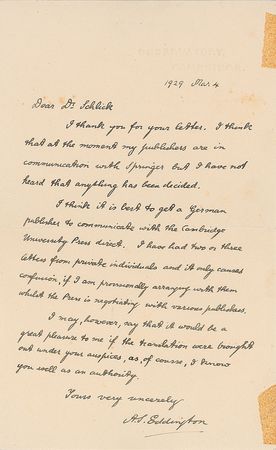 1929 Mar 4
Dear Dr Schlick
I thank you for your letter. I think
that at the moment my publishers are in
communication with Springer but I have not
heard that anything has been decided.
I think it is best to get a German
publisher to communicate with the Cambridge
University Press direct. I have had two or three
letters from private individuals and it only causes
confusion, if I am personally arranging with them
whilst the Press is negotiating with various publishers.
I may, however, say that it would be a
great pleasure to me if the translation were brought
out under your auspices, as, of course, I know
you well as an authority.
Yours very sincerely
A.S. Eddington